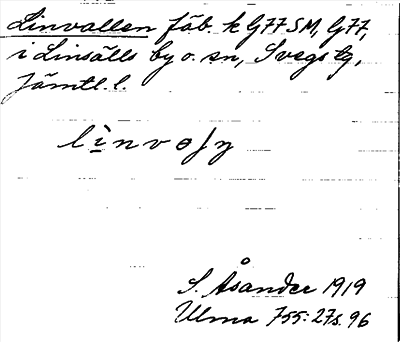 Linvallen fäb. k G77 SM, G77,
i Linsälls by o. sn, Svegs tg,
Jämtl. l.
S. Åsander 1919
Ulma 755:27 s. 96